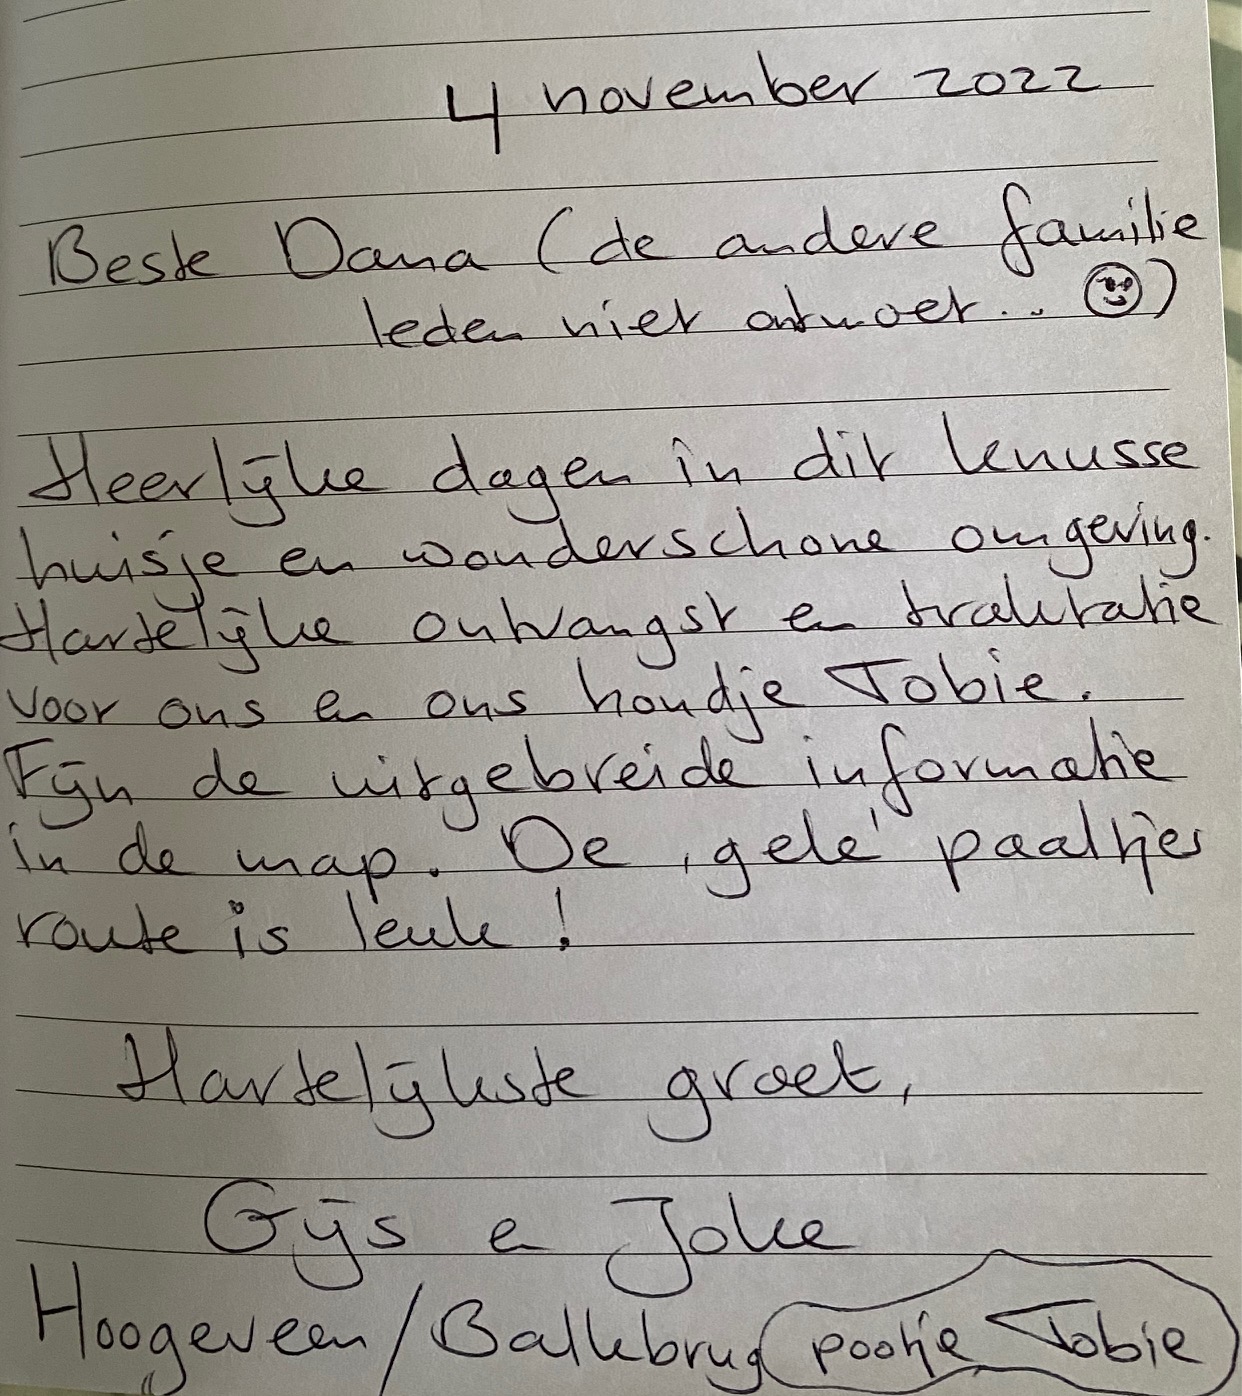 4 november 2022
Beste Dana (de andere familie
leden niet ontmoet... ☺)
Heerlijke dagen in dit knusse
huisje en wonderschone omgeving.
Hartelijke ontvangst en traktatie
voor ons en ons hondje Tobie.
Fijn de uitgebreide informatie
in de map. De 'gele' paaltjes
route is leuk!
Hartelijkste groet,
Gijs en Joke
Hoogeveen/Balkbrug pootje Tobie